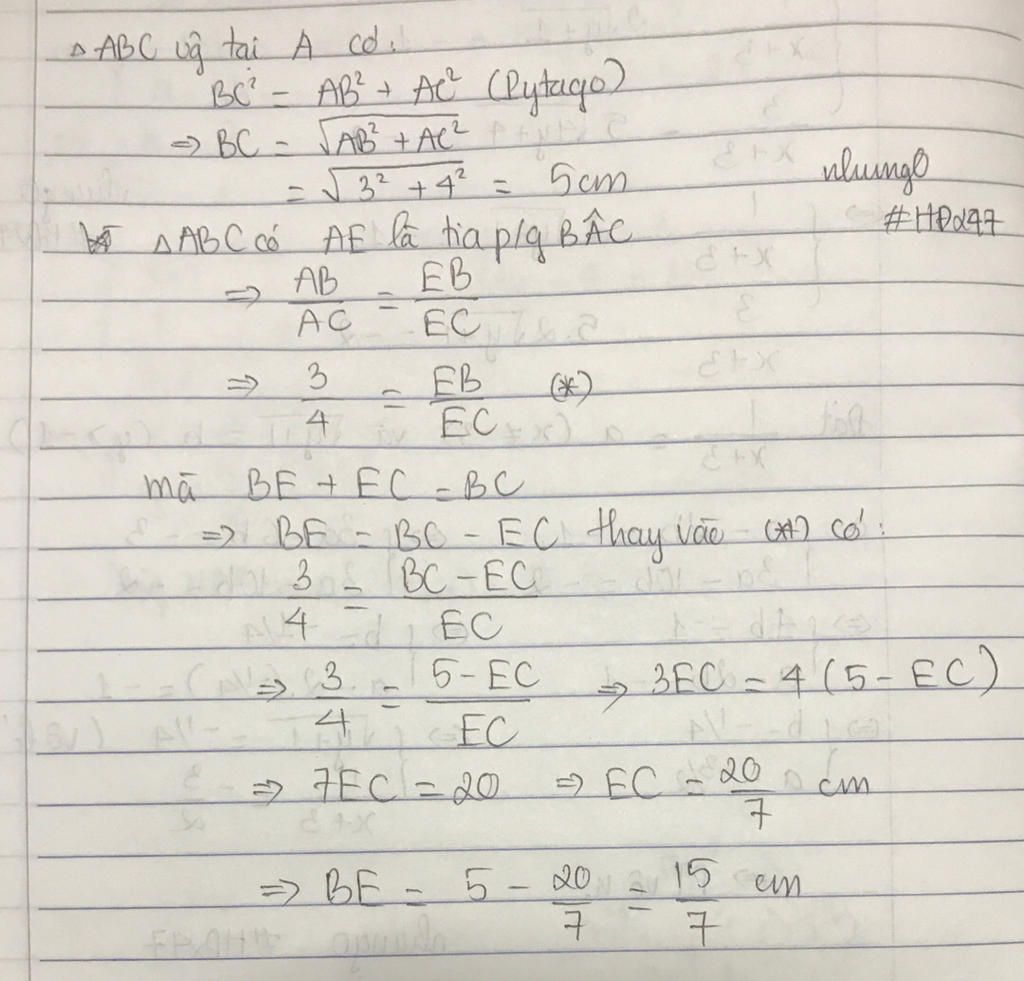 △ABC vg tại A có:
BC² = AB² + AC² (Pytago)
⇒ BC = √(AB² + AC²)
= √(3² + 4²) = 5cm
nhungo
#HD247
△ABC có AE là tia p/g BÂC
⇒ AB/AC = EB/EC
⇒ 3/4 = EB/EC (*)
mà BE + EC = BC
⇒ BE = BC - EC thay vào (*) có:
3/4 = BC - EC/EC
⇒ 3/4 = 5 - EC/EC ⇒ 3EC = 4(5 - EC)
⇒ 7EC = 20 ⇒ EC = 20/7 cm
⇒ BE = 5 - 20/7 = 15/7 cm